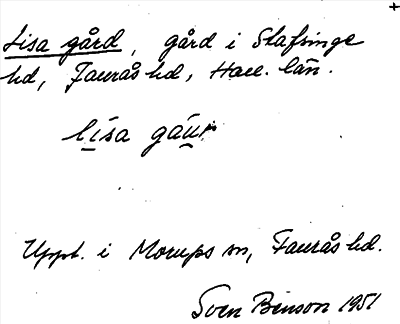 Lisa gård, gård i Stafsinge
hd, Faurås hd, Hall. län.
lísa gáu
Uppt. i Morups sn, Faurås hd.
Sven Benson 1951